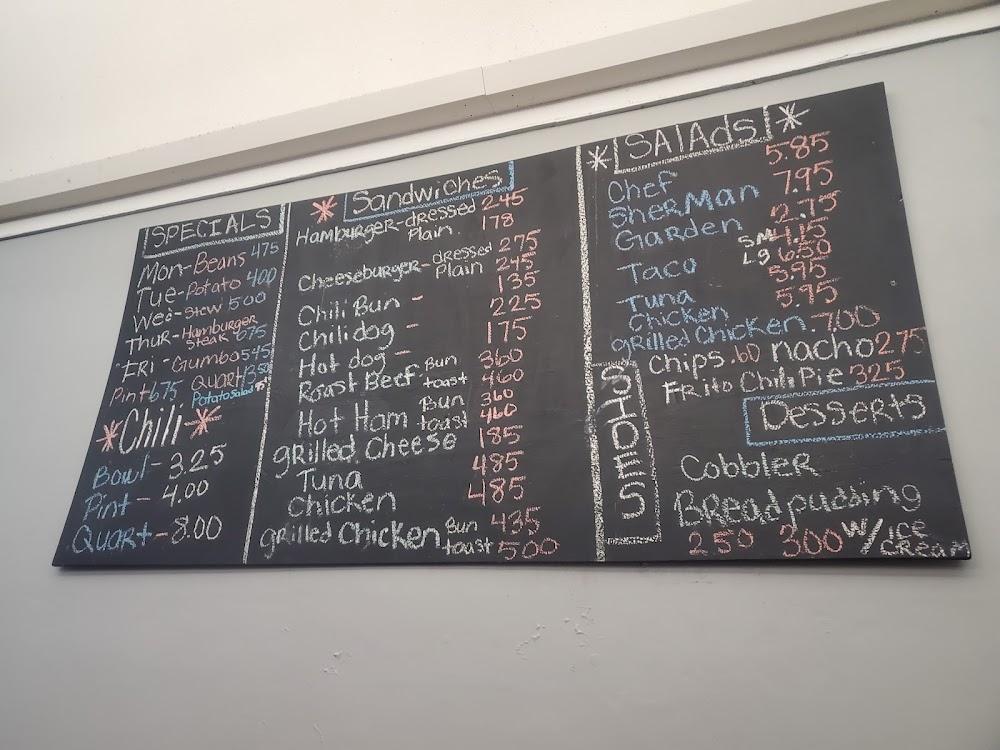 SPECIALS
Mon-Beans 475
Tue-Potato 400
Wed-Stew 500
Thur-Hamburger
Steak 675
FRI-Gumbo 545
Pint 675 Quart 1350
Potato Salad
*Chili*
Bowl-3.25
Pint-4.00
Quart-8.00
* Sandwiches
Hamburger-dressed 245
Plain 178
Cheeseburger-dressed 275
Plain 245
Chili Bun - 135
Chilidog - 225
Hot dog - 175
Roast Beef-Bun 360
toast 460
Hot Ham Bun 360
toast 460
gRilled Cheese 185
Tuna 485
Chicken 485
gRilled Chicken Bun 435
toast 500
* SALAds *
Chef 5.85
SherMan 7.95
Garden 2.75
Taco SM 4.15
LG 6.50
Tuna 5.95
Chicken 5.95
gRilled Chicken 7.00
SIDES
Chips .60 nacho 275
Frito Chili Pie 325
Desserts
CobbleR
BReadpudding
2.50 300 w/ice
cream